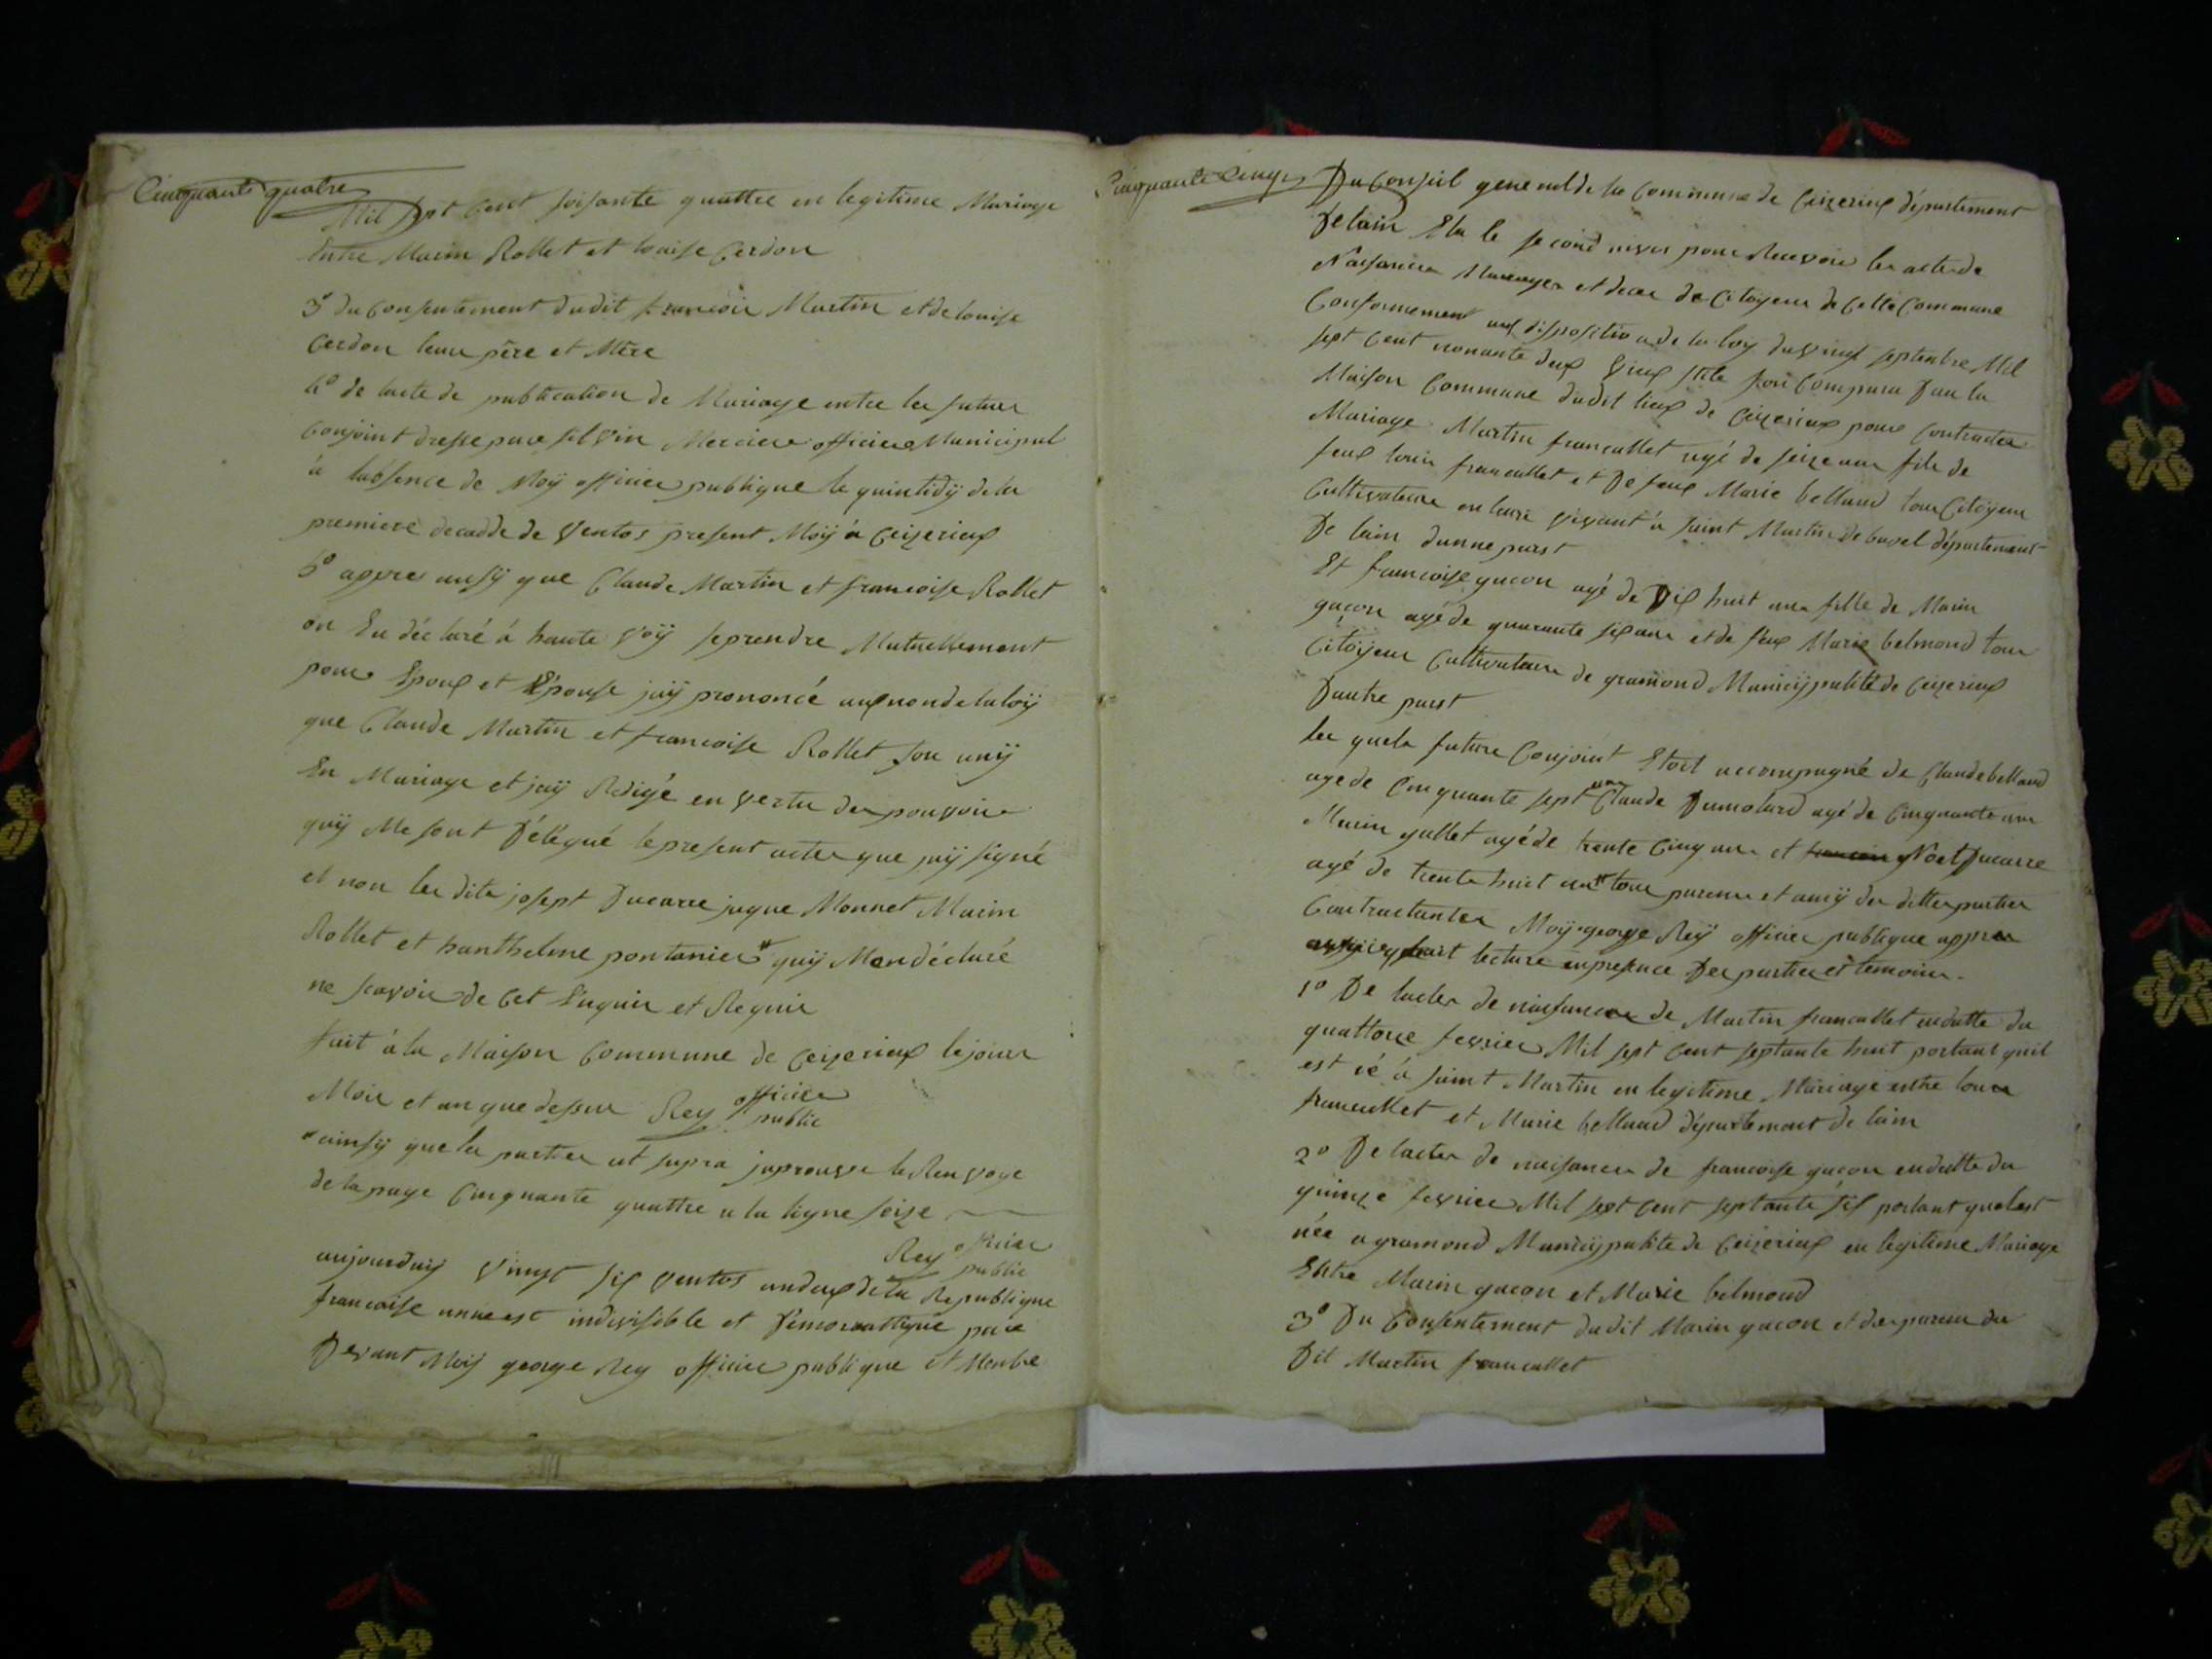 Cinquante quatre
Mil Sept Cent soisante quattre en legitime Mariage
Entre Marin Rollet et louise Cerdon
3º du Consentement dudit francois Martin et de louise
Cerdon leur père et Mère
4º de lacte de publication de Mariage entre les futures
Conjoint dresse pare silvin Mercier officier Municipal
à labsence de Moÿ officier publique le quintidÿ de la
premiere decadde de Ventos present Moÿ à Ceizerieux
5º apres ausÿ que Claude Martin et francoise Rollet
on Eu déclaré à haute Voÿ se prendre Mutuellement
pour Epoux et Epouse jaÿ prononcé aux non de la loÿ
que Claude Martin et francoise Rollet son unÿ
En Mariage et jaÿ Redigé en Vertu des pouvoir
quÿ Me sont Délégué le present actes que jaÿ signé
et non les dits josept Ducarre jaque Monnet Marin
Rollet et hanthelme pontanier quÿ Mon déclaré
ne scavoir de Cet Enquir et Requir
fait à la Maison Commune de Ceizerieux le jour
Mois et an que dessus Rey officier public
ainsÿ que les parties ut supra japrouve le Renvoye
de la page Cinquante quattre a la ligne seize
Rey officier public
aujourduÿ Vingt six Ventos an deux de la Republique
francaise unne est indivisible et Démocrattique pare
Devant Moÿ george Rey officier publique et Menbre
Cinquante Cinq
Du Conseil general de la Commune de Ceizerieux département
De lain Elu le second nivos pour Recevoir les acte de
Naissances Mariages et deces de Citoyens de Cette Commune
Conformement aux dispositions de la loy du vingt septenbre Mil
sept Cent nonante deux Vieux stile son Comparu Dan la
Maison Commune dudit lieux de Ceizerieux pour Contracter
Mariage Martin francallet agé de seize ans fils de
feux louis francallet et De feux Marie belland tous Citoyens
Cultivateurs en leur vivant à saint Martin de bavel département
De lain dunne parst
Et francoise gucon agé de Dix huit ans fille de Marin
gucon agé de quarante six ans et de feux Marie belmond tous
Citoyens Cultivateurs de gramond Municÿpalité de Ceizerieux
Dautre parst
les quels future Conjoint Etoit accompagné de Claude belland
age de Cinquante sept ans Claude Dumolard agé de Cinquante ans
Marin gallet agé de trente Cinq ans et francois Noel Ducarre
agé de trente huit ans tous parens et amÿ des dittes parties
Contractantes Moÿ george Reÿ officier publique appres
avoir fait lecture en presence Des parties et temoins
1º De lactes de naissances de Martin francallet en datte du
quattorze fevrier Mil sept Cent septante huit portant quil
est né à saint Martin en legitime Mariage entre louis
francallet et Marie belland département de lain
2º De lactes de naissances de francoise gucon en datte du
quinze fevrier Mil sept Cent septante six portant quelest
née a gramond Municÿpalité de Ceizerieux en legitime Mariage
Entre Marin gucon et Marie belmond
3º Du Consentement dudit Marin gucon et des parens du
Dit Martin francallet